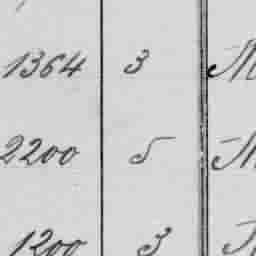 1364 3 M
2200 5 M
1200 3